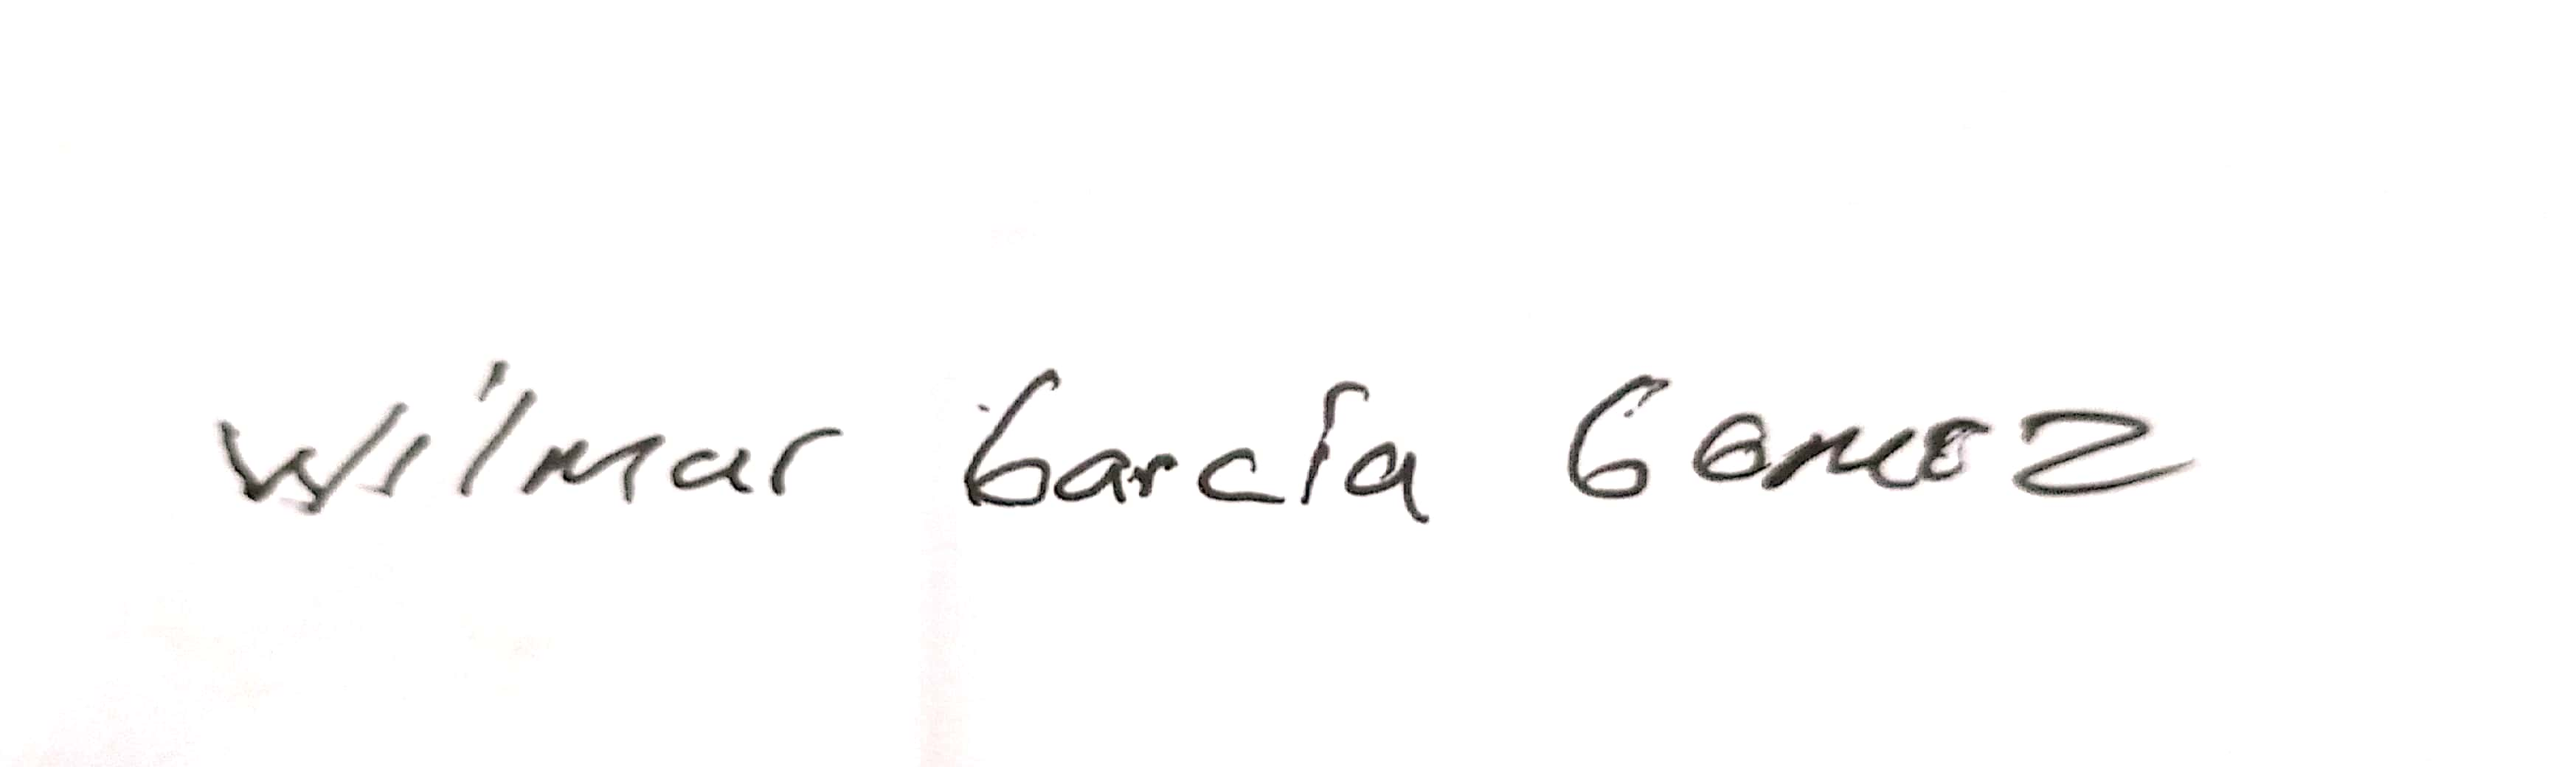 Wilmar García Gomez